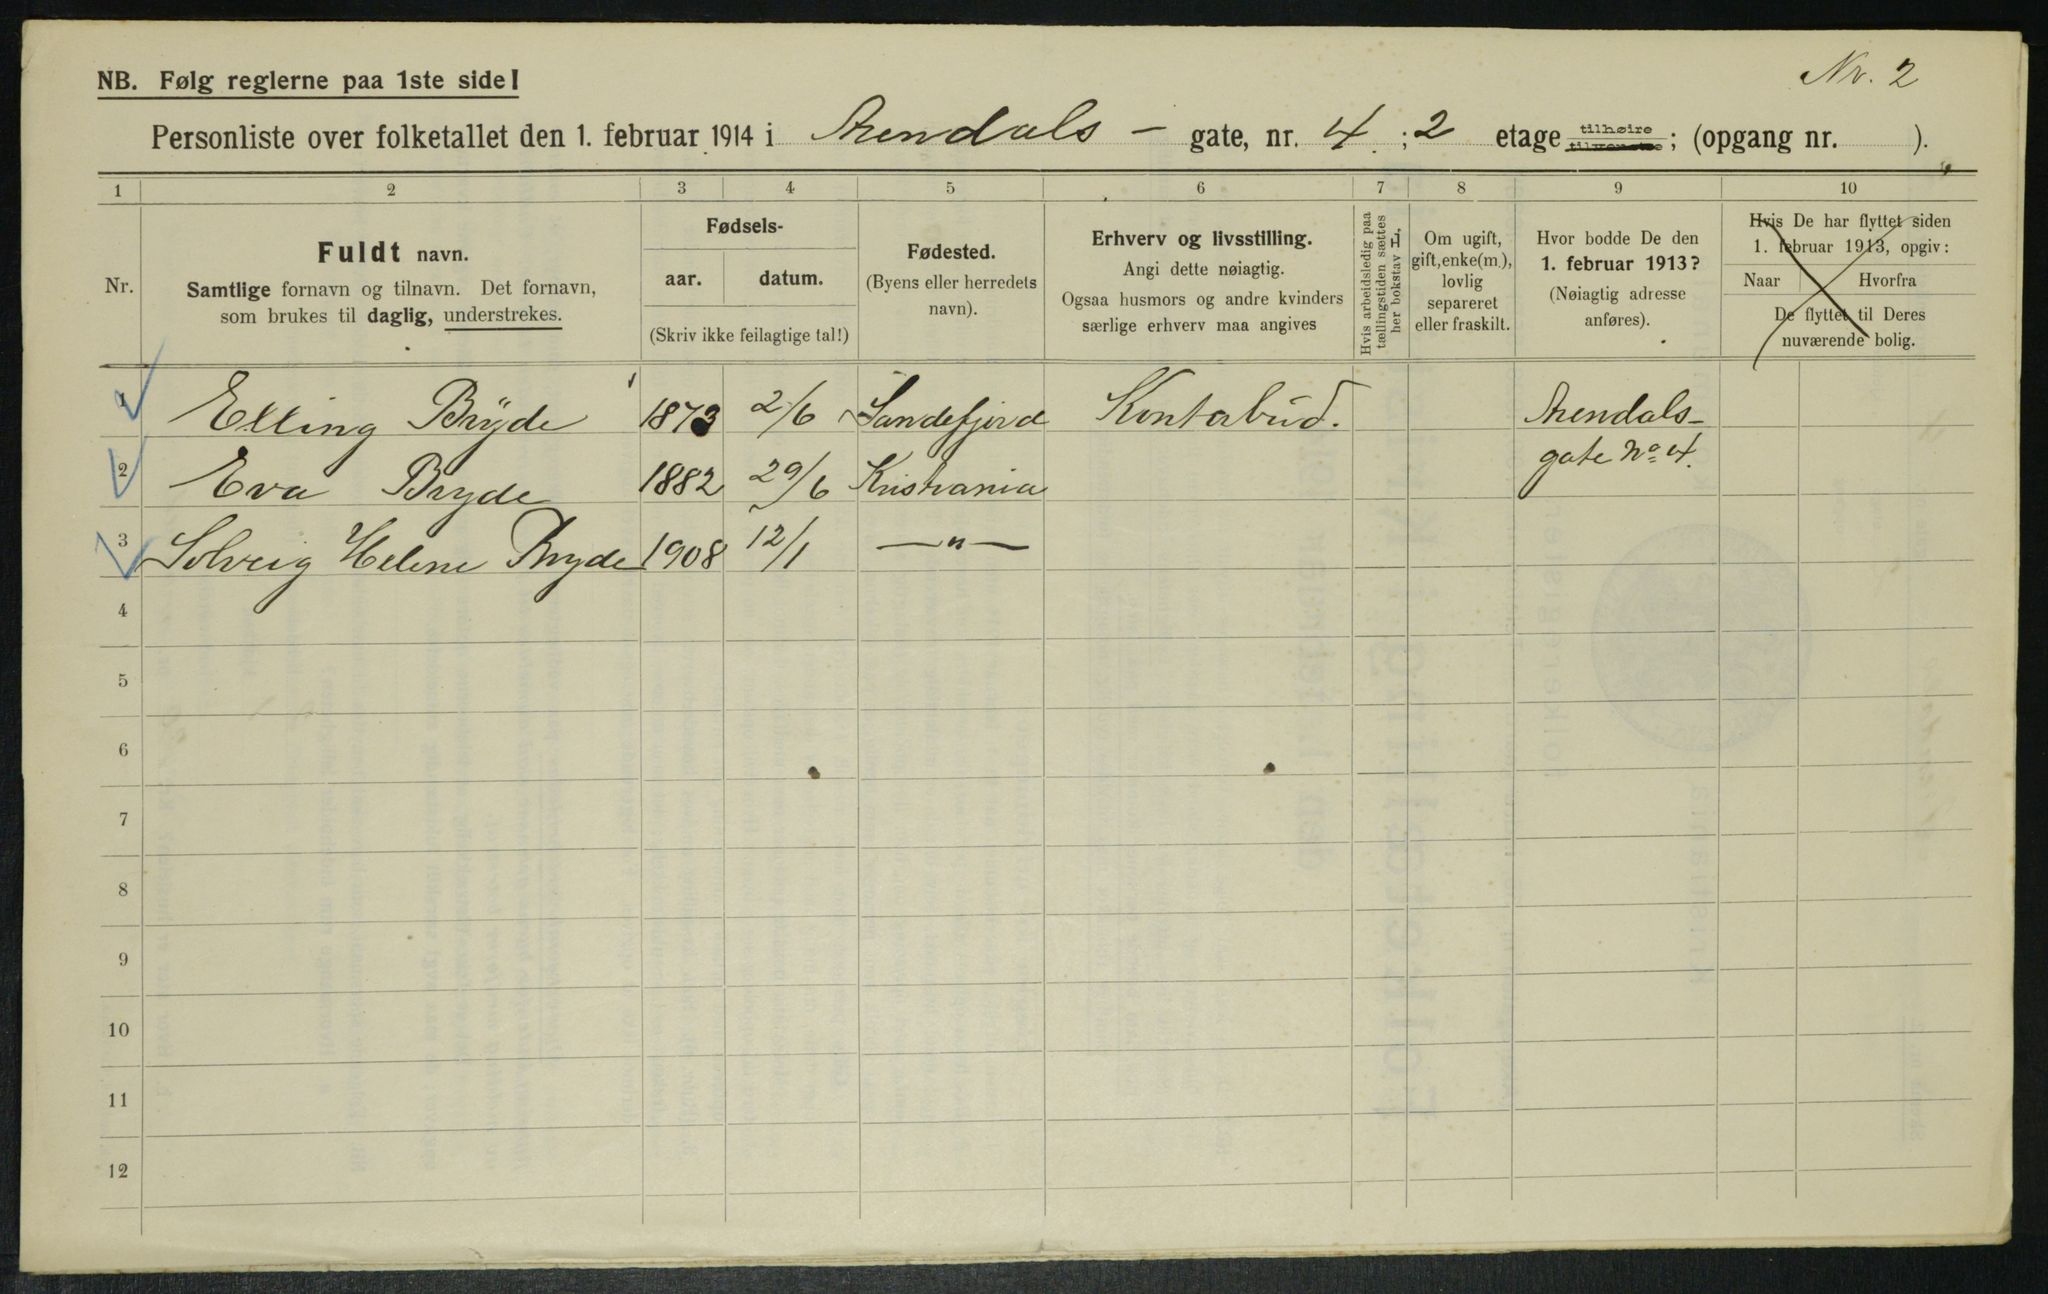 Nr. 2
NB. Følg reglerne paa 1ste side!
Personliste over folketallet den 1. februar 1914 i Arendals - gate, nr. 4 ; 2 etage tilhøire tilvenstre ; (opgang nr. ).
1 2 3 4 5 6 7 8 9 10
Nr.
Fuldt navn.
Samtlige fornavn og tilnavn. Det fornavn,
som brukes til daglig, understrekes.
Fødsels-
aar. datum.
(Skriv ikke feilagtige tal!)
Fødested.
(Byens eller herredets
navn).
Erhverv og livsstilling.
Angi dette nøiagtig.
Ogsaa husmors og andre kvinders
særlige erhverv maa angives
Hvis arbeidsledig paa
tællingstiden sættes
her bokstav L.
Om ugift,
gift, enke(m.),
lovlig
separeret
eller fraskilt.
Hvor bodde De den
1. februar 1913?
(Nøiagtig adresse
anføres).
Hvis De har flyttet siden
1. februar 1913, opgiv:
Naar Hvorfra
De flyttet til Deres
nuværende bolig.
1 Elling Bryde 1873 2/6 Sandefjord Kontorbud. Arendals-
gate No 4.
2 Eva Bryde 1882 29/6 Kristiania
3 Solveig Helene Bryde 1908 12/1 —"—
4
5
6
7
8
9
10
11
12